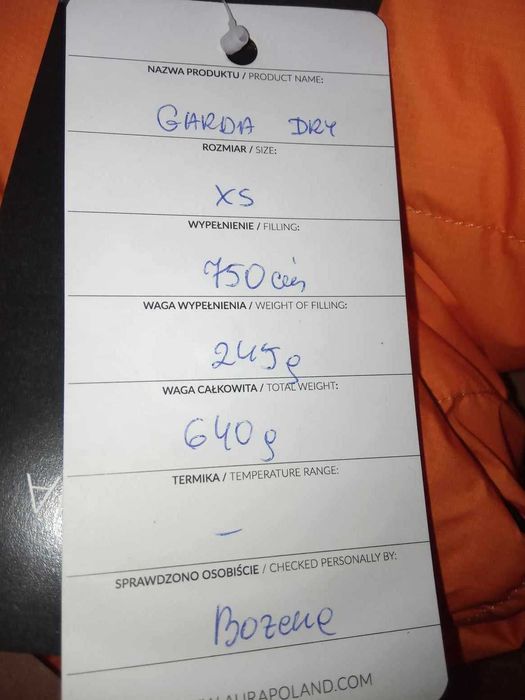 NAZWA PRODUKTU / PRODUCT NAME:
GARDA DRY
ROZMIAR / SIZE:
XS
WYPEŁNIENIE / FILLING:
750 cuin
WAGA WYPEŁNIENIA / WEIGHT OF FILLING:
245g
WAGA CAŁKOWITA / TOTAL WEIGHT:
640g
TERMIKA / TEMPERATURE RANGE:
–
SPRAWDZONO OSOBIŚCIE / CHECKED PERSONALLY BY:
Bożenę
AURAPOLAND.COM